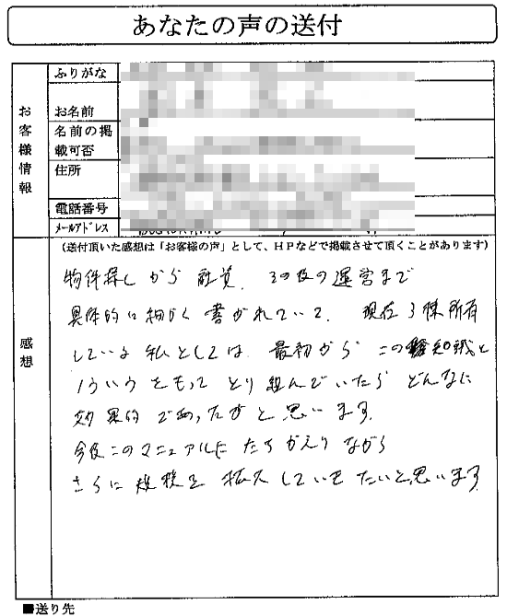 あなたの声の送付
お客様情報
ふりがな
お名前
名前の掲
載可否
住所
電話番号
メールアドレス
(送付頂いた感想は「お客様の声」として、HPなどで掲載させて頂くことがあります)
感想
物件探しから 融資、その後の運営まで
具体的に細かく書かれていて、現在3棟所有
している私としては 最初から この知識と
をもって とり組んでいたら どんなに
効果的であったかと思います。
今後このマニュアルに たちかえり ながら
さらに規模を拡大していきたいと思います
■送り先